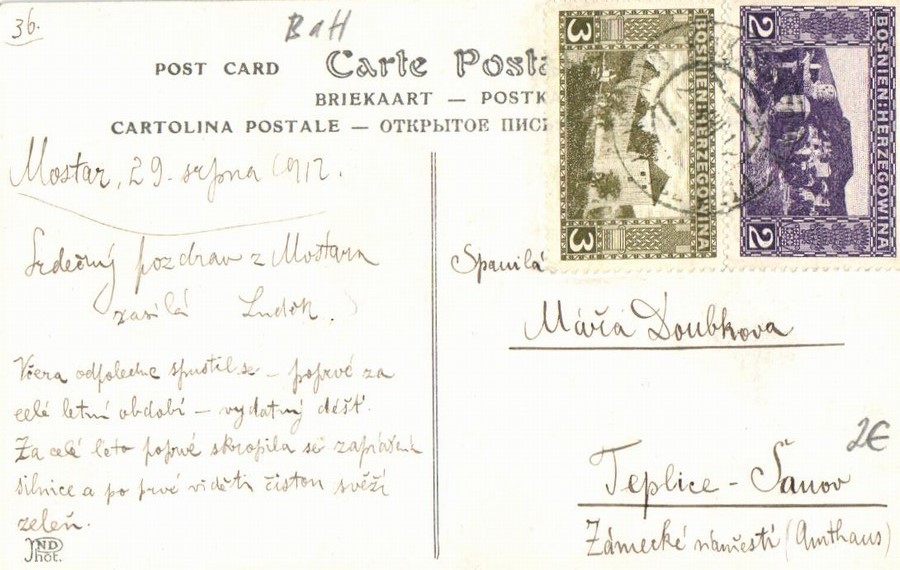 36.
BaH
POST CARD Carte Posta
BRIEKAART — POSTK
CARTOLINA POSTALE — ОТКРЫТОЕ ПИСЬ
3 BOSNIEN-HERZEGOWINA 3
2 BOSNIEN-HERZEGOWINA 2
Mostar, 29. srpna 1912.
Srdečný pozdrav z Mostara
zasílá Luděk.
Včera odpoledne spustil se – poprvé za
celé letní období – vydatný déšť.
Za celé léto poprvé skropila se zaprášená
silnice a po prvé viděti čistou svěží
zeleň.
IND
Phot.
Spanilá
Mářa Doubkova
2€
Teplice – Šanov
Zámecké náměstí (Amthaus)